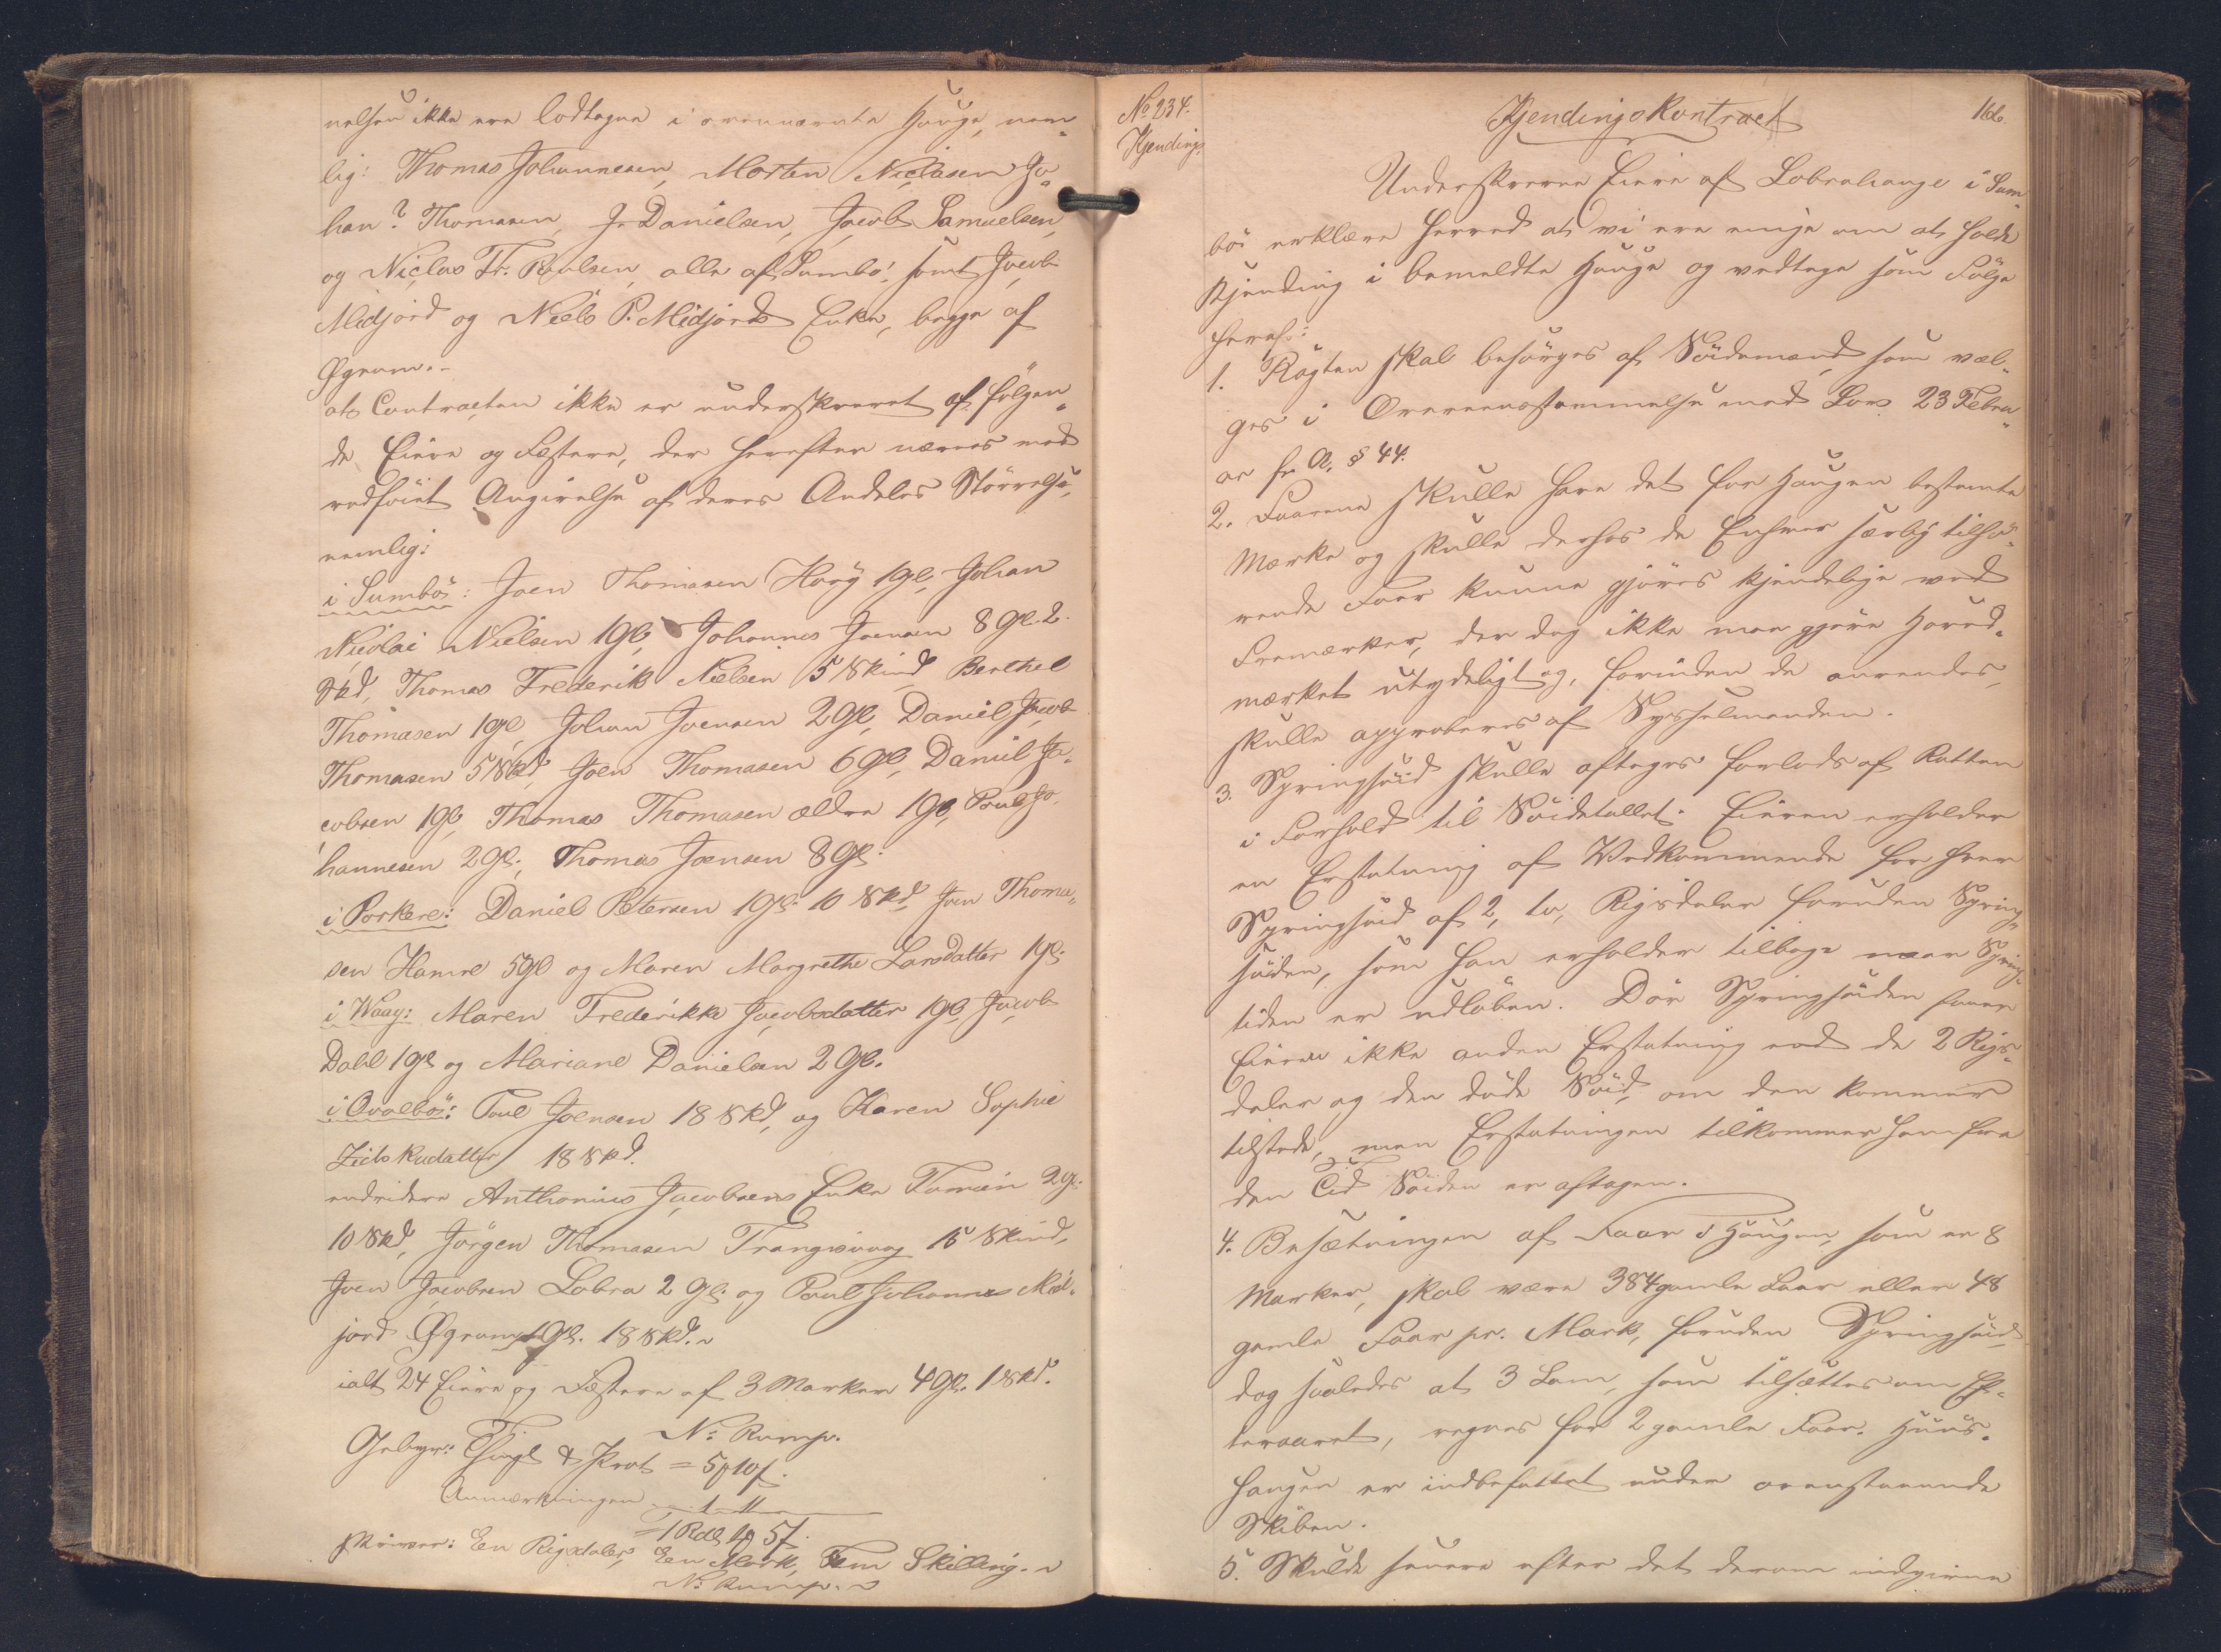 nelsen ikke ere lodtagne i ovennævnte Hauge, nem-
lig: Thomas Johannesen, Morten Niclasen Jo-
han? Thomasen, J. Danielsen, Jacob Samuelsen,
og Niclas Fr. Poulsen, alle af Sumbö, samt Jacob
Midjord og Niels P. Midjords Enke, begge af
Øgrum.-
at Contracten ikke er underskrevet af følgen-
de Eiere og Fæstere, der herefter nævnes med
vedføiet Angivelse af deres Andeles Störrelse,
nemlig:
i Sumbö: Joen Thomasen Hovÿ 1 Gl, Johan
Nicolai Nielsen 1 Gl, Johannes Joensen 8 Gl. 2.
Skd, Thomas Frederik Nielsen 5 Skind Berthel
Thomasen 1 Gl, Johan Joensen 2 Gl, Daniel Jacob
Thomasen 5 Skd, Joen Thomasen 6 Gl, Daniel Ja-
cobsen 1 Gl, Thomas Thomasen ældre 1 Gl, Poul Jo-
hannesen 2 Gl., Thomas Joensen 8 Gl.
i Porkere: Daniel Petersen 1 Gl. 10 Skd, Joen Thoma-
sen Hamre 5 Gl og Maren Margrethe Larsdatter 1 Gl.
i Waag: Maren Frederikke Jacobsdatter 1 Gl, Jacob
Dahl 1 Gl og Mariane Danielsen 2 Gl.
i Qvalbö: Poul Joensen 18 Skd, og Karen Sophie
18 Skd.
endvidere Anthonius Jacobsens Enke Famien 2 Gl.
10 Skd, Jörgen Thomasen Trangisvaag 15 Skind,
Joen Jacobsen Lobra 2 Gl. og Poul Johannes Mid-
jord Øgrum 1 Gl. 18 Skd.
ialt 24 Eiere og Fæstere af 3 Marker 4 Gl. 1 Skd.
N. Rump.
Gebyr: Thingl & Prot = 5 10 f.
Anmærkningen 1 - 11 -
= 1 Rdl 1 5 f.
skriver: En Rigsdaler, En Mark, Fem Skilling.
N. Rump.
No 234.
Kjendings
Kjendingskontract
166.
Underskrevne Eiere af Lobrahauge i Sum-
bö erklære herved at vi ere enige om at holde
Kjending i bemeldte Hauge og vedtage som Følge
heraf:
1. Røgten skal besörges af Söidemænd, som væl-
ges i Overeensstemmelse med Lov 23 Febru-
ar f. A. § 44.
2. Faarene skulle have det for Haugen bestemte
Mærke og skulle derhos de Enhver særlig tilhö-
rende Faar kunne gjöres kjendelige ved
Fremærker, der dog ikke maa gjöre Hoved-
mærket utydeligt og, forinden de anvendes,
skulle approberes af Sysselmanden.
3. Springsöid skulle aftages forlods af Retten
i Forhold til Söidetallet. Eieren erholder
en Erstatning af Vedkommende for hver
Springsöid af 2, to, Rigsdaler foruden Spring-
söiden, som han erholder tilbage naar Spring-
tiden er udlöben. Dör Springsöiden faaer
Eieren ikke anden Erstatning end de 2 Rigs-
daler og den döde Söid, om den kommer
tilstede, men Erstatningen tilkommer ham fra
den Tid Söiden er aftagen.
4. Besætningen af Faar i Haugen, som er 8
Marker, skal være 384 gamle Faar eller 48
gamle Faar pr. Mark, foruden Springsöid
dog saaledes at 3 Lam, som tilsættes om Ef-
teraaret, regnes for 2 gamle Faar. Huus-
haugen er indbefattet under ovenstaaende
Skiben.
5. Skulde senere efter det derom indgivne